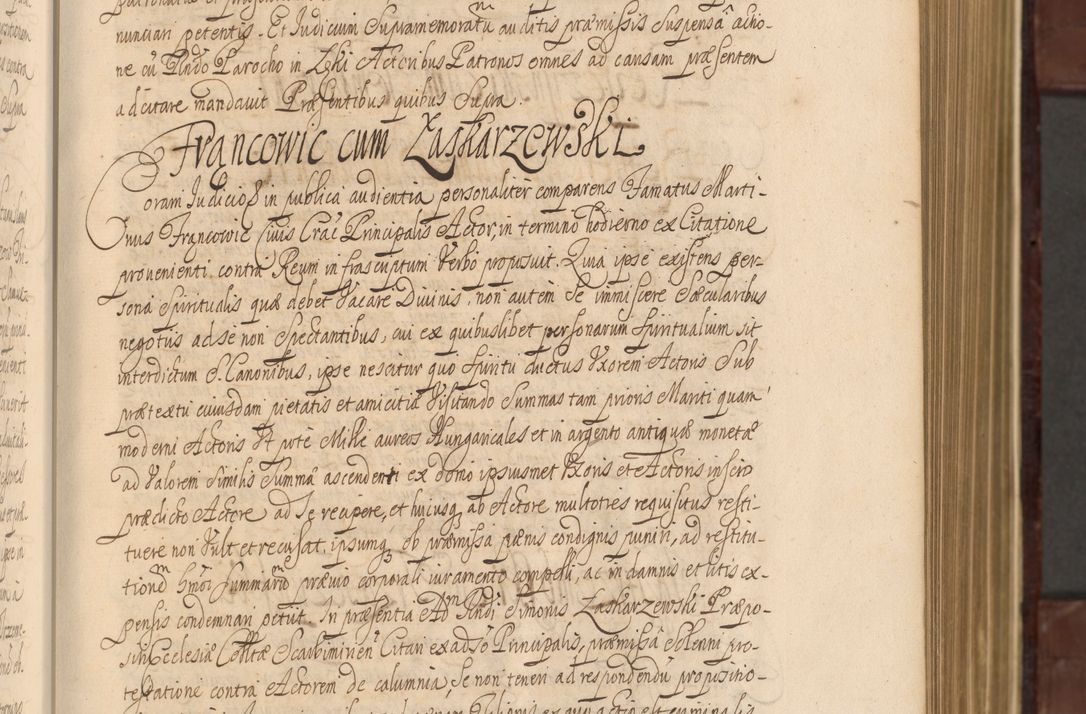 nuncian petentis. Et Iudicium Supramemoratũ auditis præmissis Suspensâ actio-
ne cũ Rndo Parocho in Actoribus Patronos omnes ad causam præsentem
adcitare mandavit Præsentibus quibus Supra.
Francowic cum Zaskarzewski.
Coram Iudicio in publica audientia personaliter comparens Famatus Marti-
nus Francowic Civis Crac Principalis Actor, in termino hodierno ex Citatione
provenienti contra Reum infrascriptum Verbo proposuit. Quia ipse existens per-
sona Spiritualis quæ debet Vacare Divinis, non autem se immiscere Sæcularibus
negotiis ad se non Spectantibus, cui ex quibuslibet personarum Spiritualium sit
interdictum S. Canonibus, ipse nescitur quo Spiritu ductus Uxorem Actoris Sub
prætextu cuiusdam pietatis et amicitiæ Visitando Summas tam prioris Mariti quam
moderni Actoris Ut puté Mille aureos Hungaricales et in argento antiquæ monetæ
ad Valorem Similis Summæ ascendenti ex domo ipsiusmet Uxoris et Actoris inscio
prædicto Actore ad se recipere, et huiusq, ab Actore multoties requisitus resti-
tuere non Vult et recusat, ipsumq ob præmissa pænis condignis puniri, ad restitu-
tionem hmoi Summarũ prævio corporali iuramento compelli, ac in damnis et litis ex-
pensis condemnari petiit. In præsentia Adm Rndi Simonis Zaskarzewski Præpo-
siti Ecclesiæ Colltæ Scarbimirien Citari ex adso Principalis, præmissâ Solenni pro-
testatione contra Actorem de calumnia, se non teneri ad respondendũ propositio-